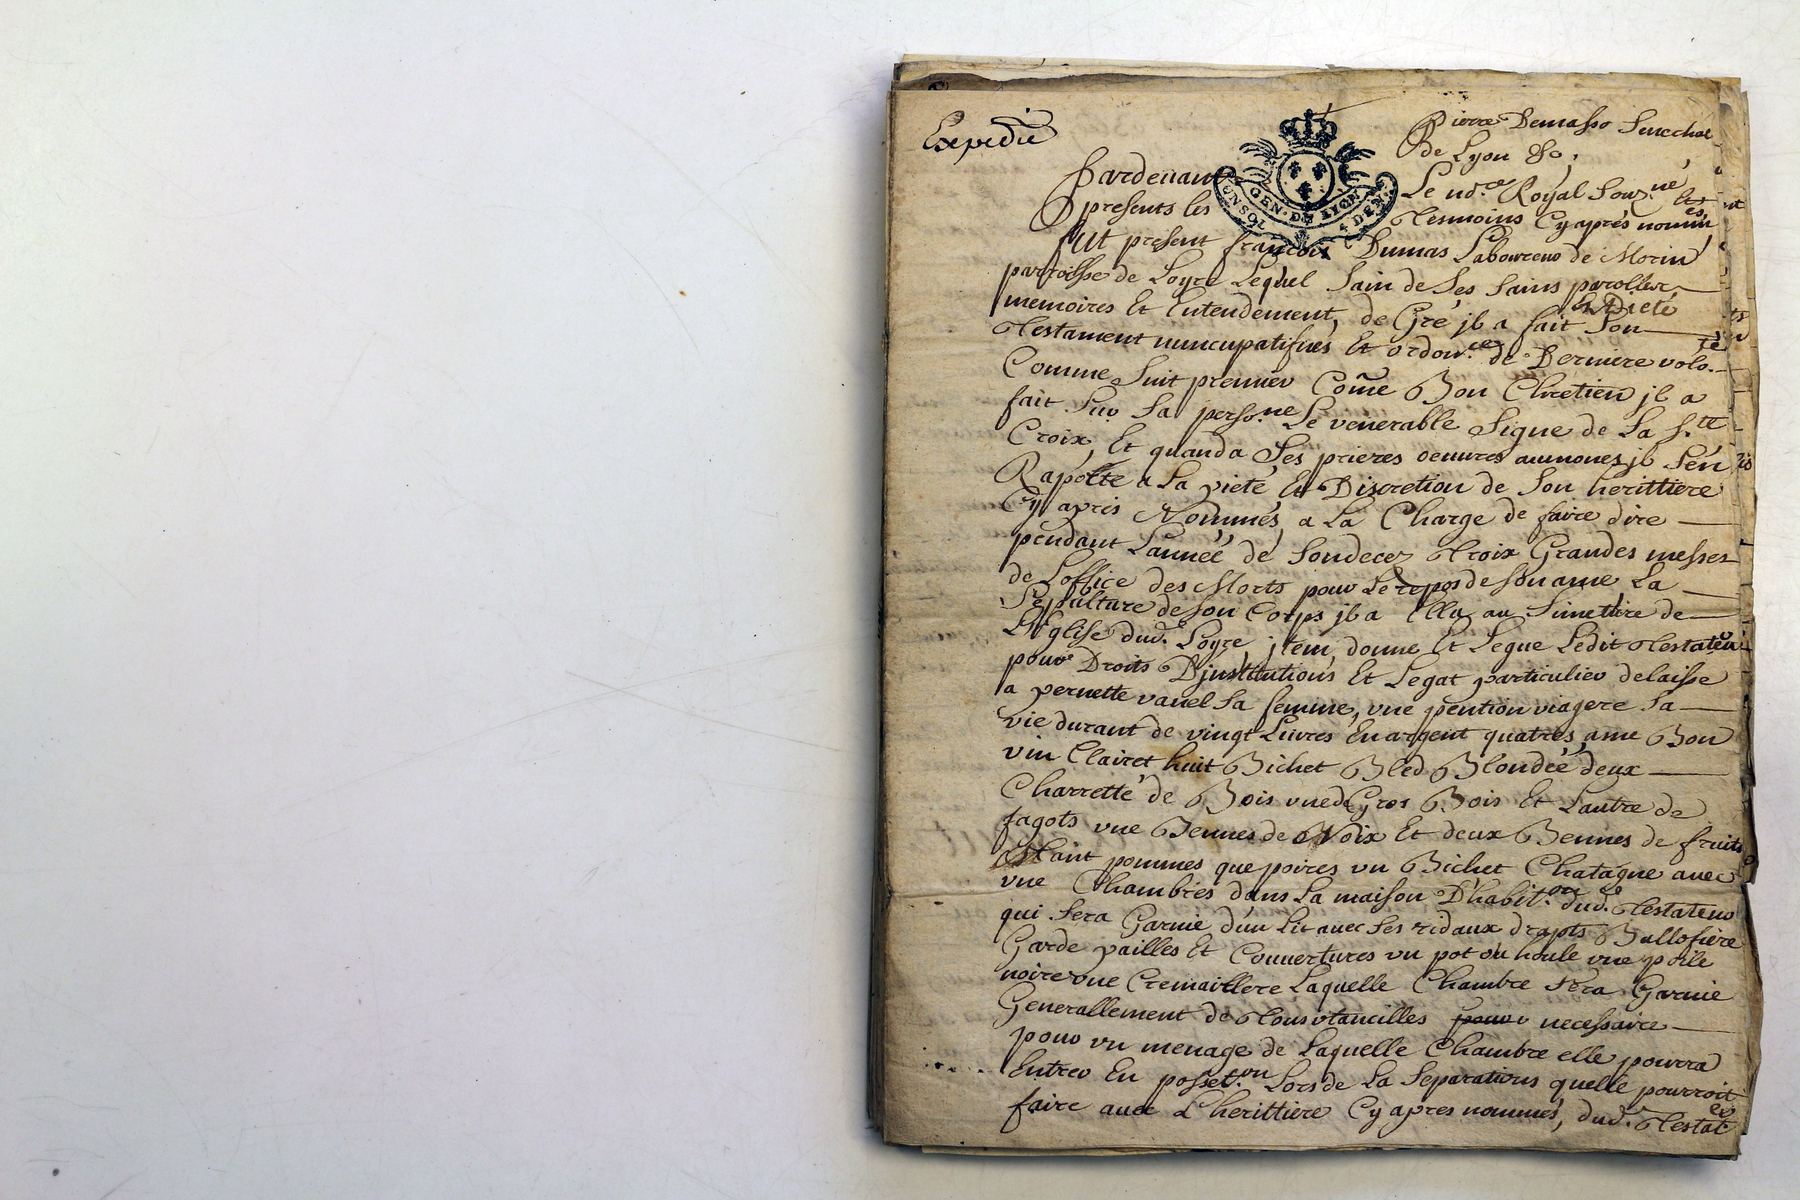 Expedié
Pierre Demasso Senechal
de Lyon &c,
Pardevant Le no.re Royal Souz.né et
presents les Tesmoins Cyaprés nommés
GEN. DE LION
CONSOL DEN.
fut present francois Dumas Laboureur de Morin
parroisse de Loyre Lequel Sain de Ses Sains parolles
memoires Et Entendement, de Gré jl a fait Son
Testament nuncupatif Et ordon.ce de Derniere volo.té
Comme Suit premier Come Bon Chretien jl a
fait Sur Sa perso.ne Le venerable Signe de La S.te
Croix, Et quand a Ses prieres oeuvres aumones jl Sén
Raporte a La pieté Et Discretion de Son herittiere
Cy apris Nommés a La Charge de faire dire
pendant L'année de Sondecez Troix Grandes messes
de Loffice des Morts pour Le repos de Son ame La
Sepulture de Son Corps jl a Ellu au Simettire de
L'Eglise dud. Loyre, jtem donne Et Legue Ledit Testateur
pour Droits Djnstitutions Et Legat particulier delaisse
a pernette vanel Sa femme, vne pention viagere Sa
vie durant de vingt Livres En argent quatres ame Bon
vin Clairet huit Bichet Bled Blondéé deux
Charretté de Bois vne de Gros Bois Et Lautre de
fagots vne Bennes de Noix Et deux Bennes de fruits
Tant pommes que poires vn Bichet Chatagne avec
vne Chambres dans La maison D'habit.on dud. Testateur
qui Sera Garnie d'un Lit avec Ses ridaux drapts Ballofiere
Garde pailles Et Couvertures vn pot ou houle vne poile
noire vne Cremaillere Laquelle Chambre Séra Garnie
Generallement de Tous vtancilles pour necessaire
pour vn menage de Laquelle Chambre elle pourra
Entrer En posset.on Lors de La Separations quelle pourroit
faire avec L'herittiere Cy apres nommés, dud. Testat.